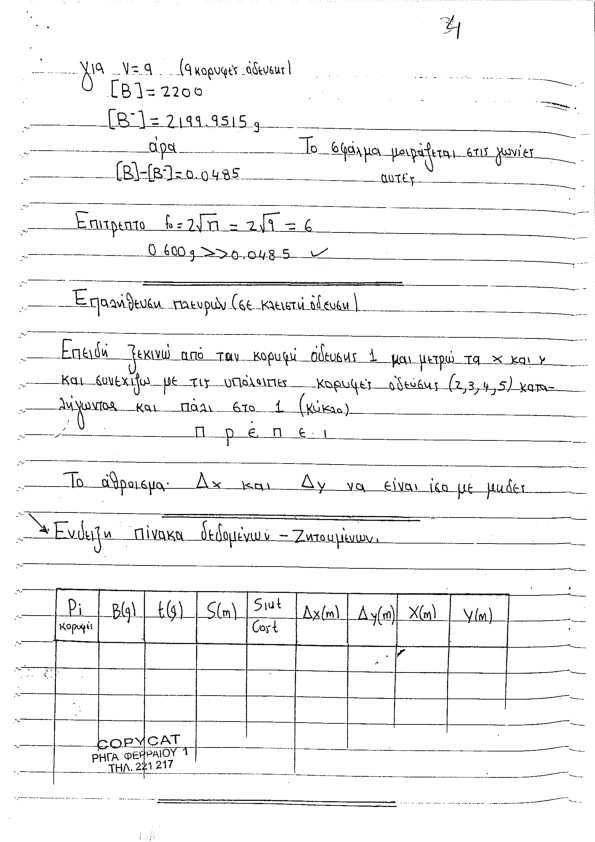 για ν=9 (9 κορυφές όδευσης)
[Β]=2200
[Β⁻]=2199.9515 g
άρα Το σφάλμα μοιράζεται στις γωνίες
[Β]-[Β⁻]=0.0485 αυτές
Επιτρεπτο fₒ=2√n = 2√9 = 6
0.600g >>0.0485 ✓
Επαλήθευση πλευρών (σε κλειστή όδευση)
Επειδή ξεκινώ από ταν κορυφή όδευσης 1 και μετρώ τα x και y
και συνεχίζω με τις υπόλοιπες κορυφές οδεύσης (2,3,4,5) κατα-
λήγωντας και πάλι στο 1 (κύκλο)
Π ρ έ π ε ι
Το άθροισμα Δx και Δy να είναι ίσο με μηδεν
Ενδειξη πίνακα δεδομένων - Ζητουμένων.
Pi B(g) t(g) S(m) Sint Δx(m) Δy(m) X(m) Y(m)
κορυφές Cost
COPYCAT
ΡΗΓΑ ΦΕΡΡΑΙΟΥ 1
ΤΗΛ. 221 217